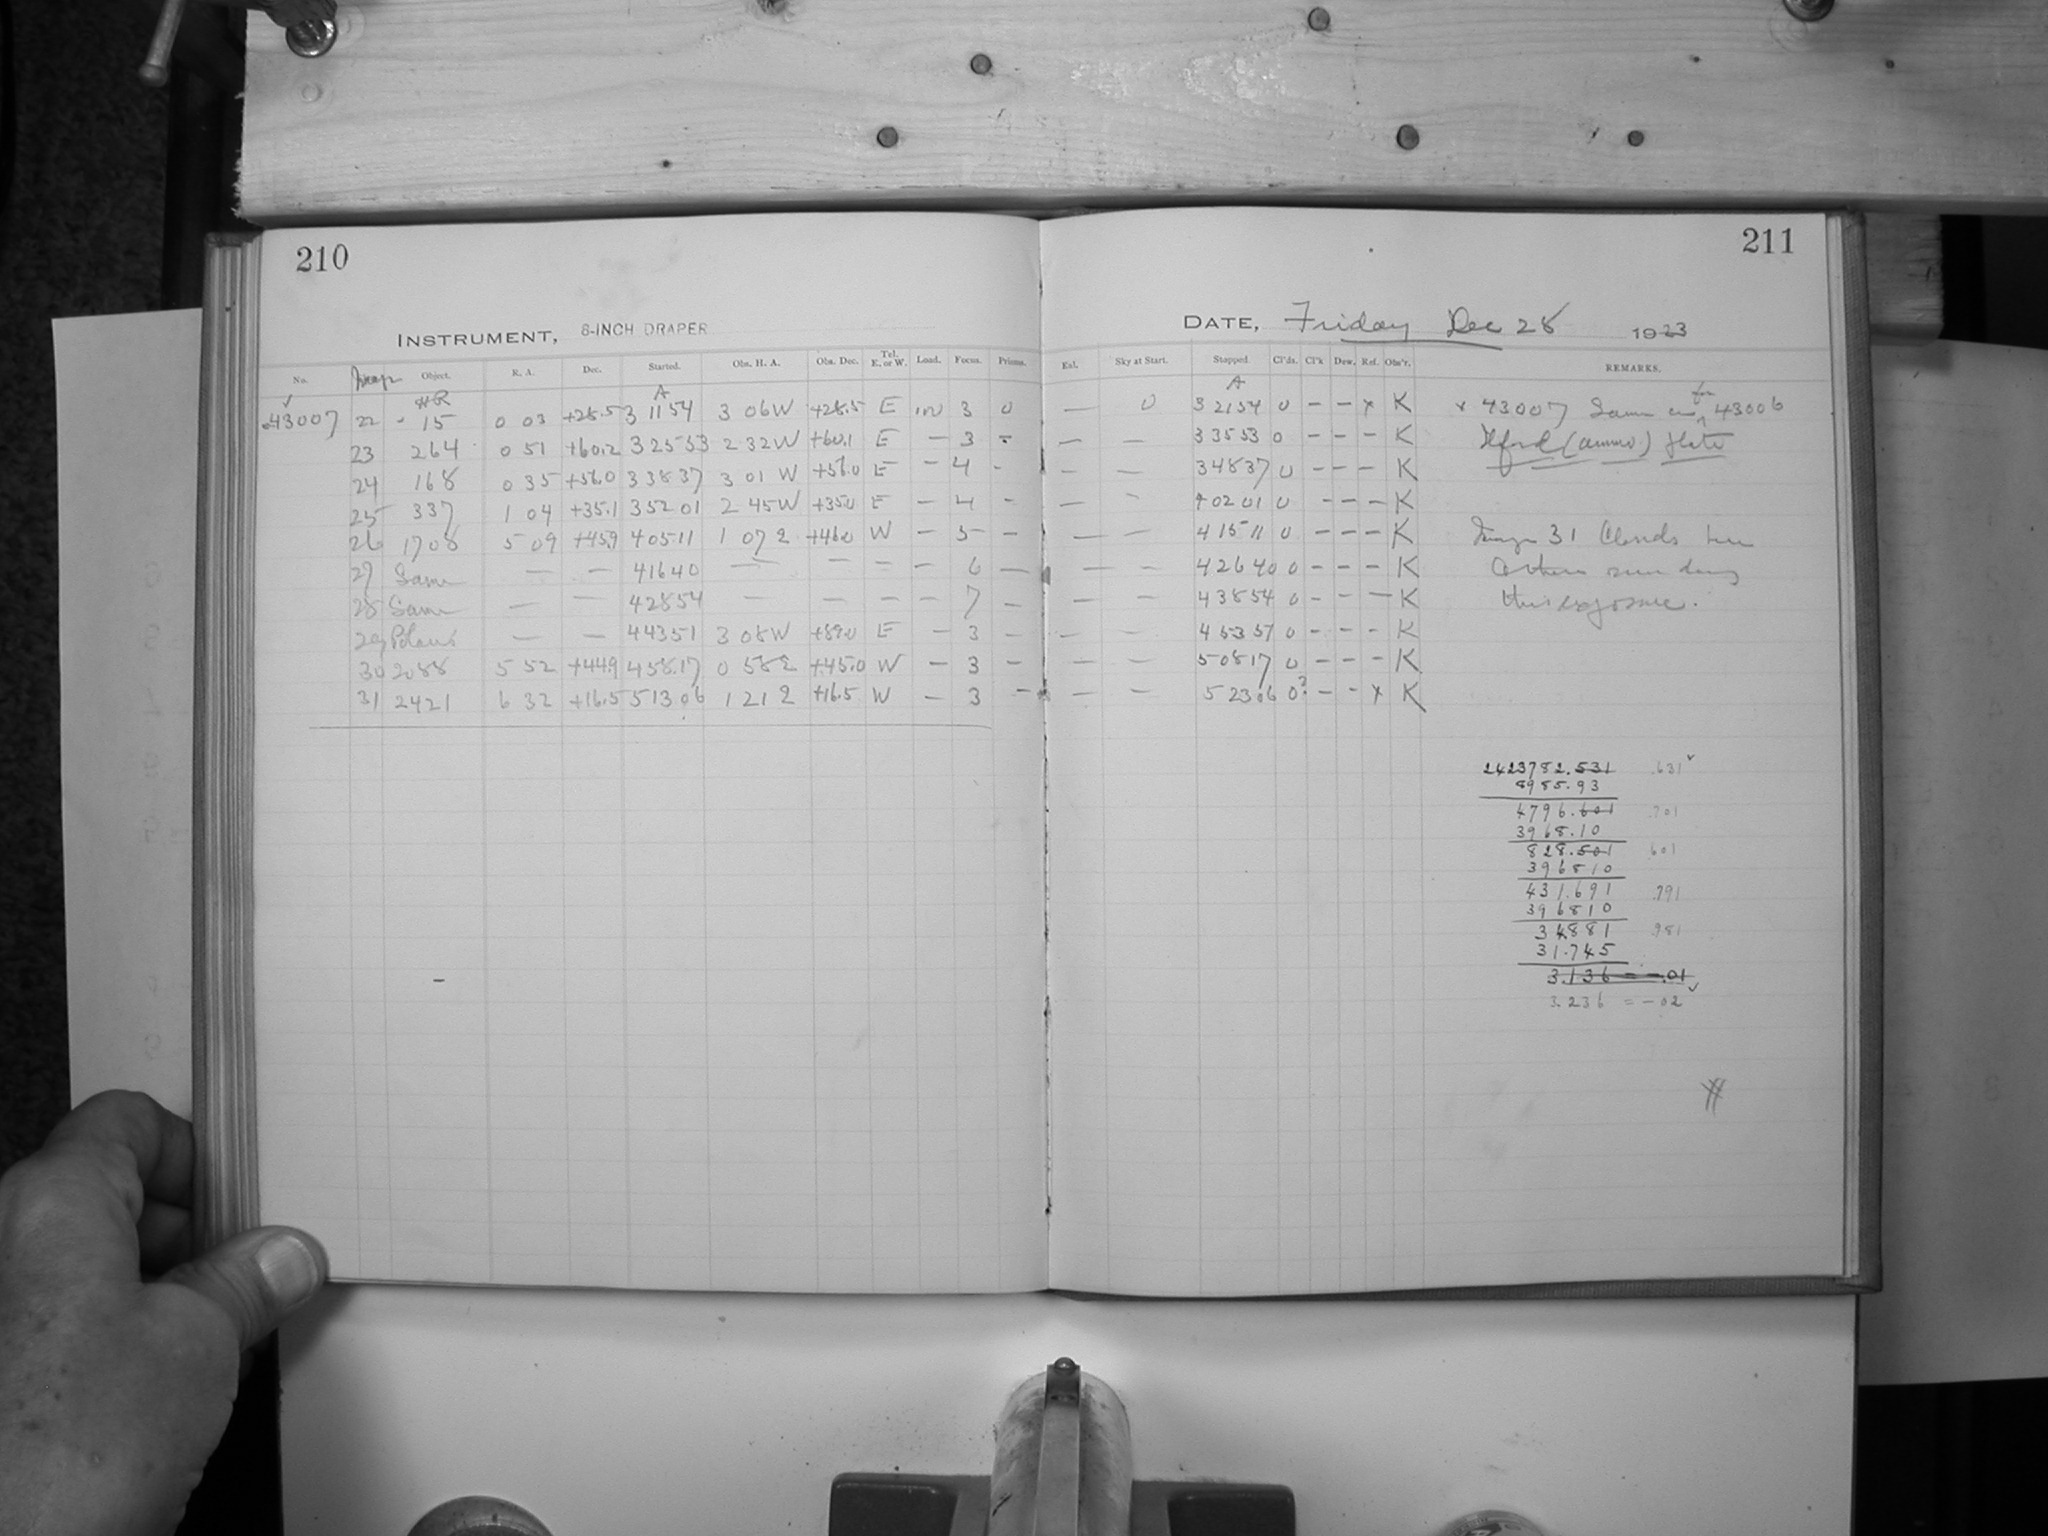 210
INSTRUMENT, 8-INCH DRAPER
No. Image Object. R. A. Dec. Started. Obs. H. A. Obs. Dec. Tel. E. or W. Load. Focus. Prisms.
HR A
43007 22 15 0 03 +28.5 3 11 54 3 06 W +28.5 E 3 0
23 264 0 51 +60.2 3 25 53 2 32 W +60.1 E — 3 -
24 168 0 35 +56.0 3 38 37 3 01 W +56.0 E — 4 -
25 337 1 04 +35.1 3 52 01 2 45 W +35.0 E — 4 -
26 1708 5 09 +45.9 4 05 11 1 07 E +46.0 W — 5 —
27 Same — — 4 16 40 — — — — 6 —
28 Same — — 4 28 54 — — — — 7 —
29 Polaris — — 4 43 51 3 08 W +89.0 E — 3 —
30 2088 5 52 +44.9 4 58 17 0 58 E +45.0 W — 3 —
31 2421 6 32 +16.5 5 13 06 1 21 E +16.5 W — 3 —
211
DATE, Friday Dec 28 1923
Exl. Sky at Start. Stopped. Cl'ds. Cl'k Dew. Ref. Obs'r. REMARKS.
A
— 0 3 21 54 0 — — x K x 43007 Same as for 43006
— — 3 35 53 0 — — — K Ilford (ammo) plate
— — 3 48 37 0 — — — K
— — 4 02 01 0 — — — K
— — 4 15 11 0 — — — K Image 31 Clouds
— — 4 26 40 0 — — — K
— — 4 38 54 0 — — — K this exposure.
— — 4 53 57 0 — — — K
— — 5 08 17 0 — — — K
— — 5 23 06 0? — — x K
2423782.531 .631
8985.93
4796.601 .701
3968.10
828.501 601
396810
431.691 .791
396810
34881 .981
31.745
3.136 = -.01
3.236 = -02
#